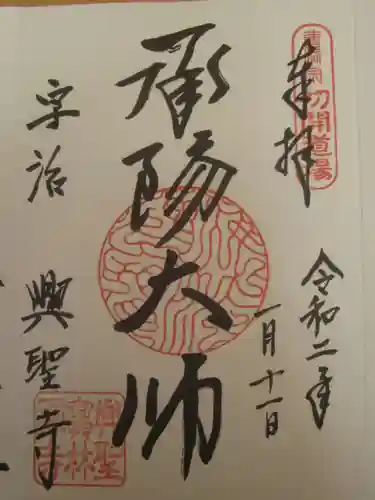 奉拝
曹洞宗初開道場
令和二年
一月十一日
承陽大師
宇治
興聖寺